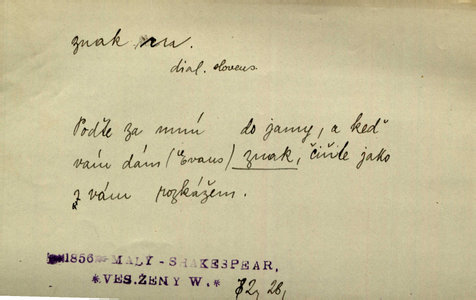 znak, m.
dial. slovens.
Poďte za mnú do jamy, a keď
vám dám (Evans) znak, čiňte jako
vám rozkážem.
*1856* MALÝ-SHAKESPEAR,
*VES.ŽENY W.* 72, 28,